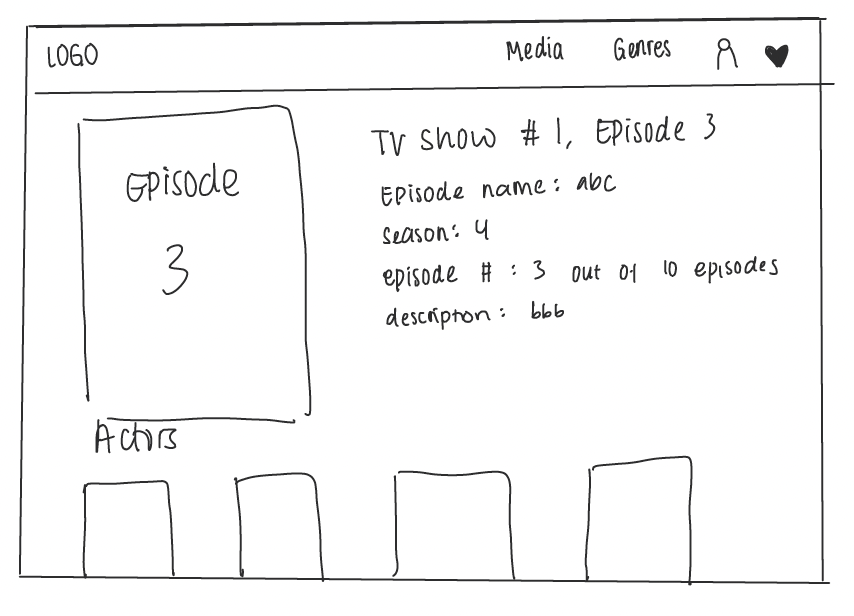 LOGO
Media Genres
Episode
3
TV Show # 1, Episode 3
Episode name: abc
season: 4
episode # : 3 out of 10 episodes
description: bbb
Actors